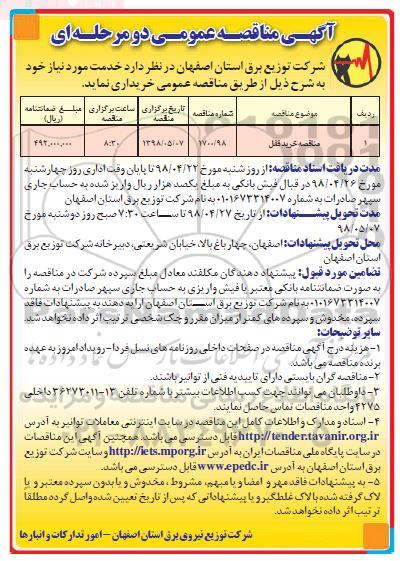 آگهـی مناقصه عمومـی دو مرحلـه ای
شرکت توزیع برق استان اصفهان در نظر دارد خدمت مورد نیاز خود
به شرح ذیل از طریق مناقصه عمومی خریداری نماید.
ردیف موضوع مناقصه شماره مناقصه تاریخ برگزاری مناقصه ساعت برگزاری مناقصه مبلـــغ ضمانتنامه (ریال)
۱ مناقصه خرید قفل ۱۷۰۰/۹۸ ۱۳۹۸/۰۵/۰۷ ۸:۳۰ ۴۹۲,۰۰۰,۰۰۰
مدت دریافت اسناد مناقصه: از روز شنبه مورخ ۹۸/۰۴/۲۲ تا پایان وقت اداری روز چهارشنبه
مورخ ۹۸/۰۴/۲۶ در قبال فیش بانکی به مبلغ یکصد هزار ریال واریز شده به حساب جاری
سپهر صادرات به شماره ۰۱۰۱۶۷۳۳۱۴۰۰۷ به نام شرکت توزیع برق استان اصفهان
مدت تحویل پیشـــنهادات: از تاریخ ۹۸/۰۴/۲۷ تا ســـاعت ۷:۳۰ صبح روز دوشنبه مورخ
۹۸/۰۵/۰۷
محل تحویل پیشنهادات: اصفهان، چهار باغ بالا، خیابان شریعتی، دبیرخانه شرکت توزیع برق
استان اصفهان
تضامین مورد قبول: پیشنهاد دهندگان مکلفند معادل مبلغ سپرده شرکت در مناقصه را
به صورت ضمانتنامه بانکی معتبر یا فیش واریزی به حساب جاری سپهر صادرات به شماره
۰۱۰۱۶۷۳۳۱۴۰۰۷ به نام شرکت توزیع برق استان اصفهان ارایه دهند به پیشنهادات فاقد
سپرده، مخدوش و سپرده های کمتر از میزان مقرر و چک شخصی ترتیب اثر داده نخواهد شد.
سایر توضیحات:
۱- هزینه درج آگهی مناقصه در صفحات داخلی روزنامه های نسل فردا - رویداد امروز به عهده
برنده مناقصه می باشد.
۲- مناقصه گران بایستی دارای تاییدیه فنی از توانیر باشند.
۳- داوطلبان می توانند جهت کسب اطلاعات بیشتر با شماره تلفن ۱۳-۳۶۲۷۳۰۱۱ داخلی
۴۲۷۵ واحد مناقصات تماس حاصل نمایند.
۴- اسناد و مدارک و اطلاعات کامل این مناقصه در سایت اینترنتی معاملات توانیر به آدرس
http://tender.tavanir.org.ir قابل دسترسی می باشد. همچنین آگهی این مناقصات
در سایت پایگاه ملی مناقصات ایران به آدرس http://iets.mporg.ir و سایت شرکت توزیع
برق استان اصفهان به آدرس www.epedc.ir قابل دسترسی می باشد.
۵- به پیشنهادات فاقد مهر و امضا و یا مبهم، مشروط، مخدوش و یا بدون سپرده معتبر و یا
لاک گرفته شده با لاک غلط گیر و یا پیشنهاداتی که پس از تاریخ تعیین شده واصل گردد مطلقا
ترتیب اثر داده نخواهد شد.
شرکت توزیع نیروی برق استان اصفهان - امور تدارکات و انبارها